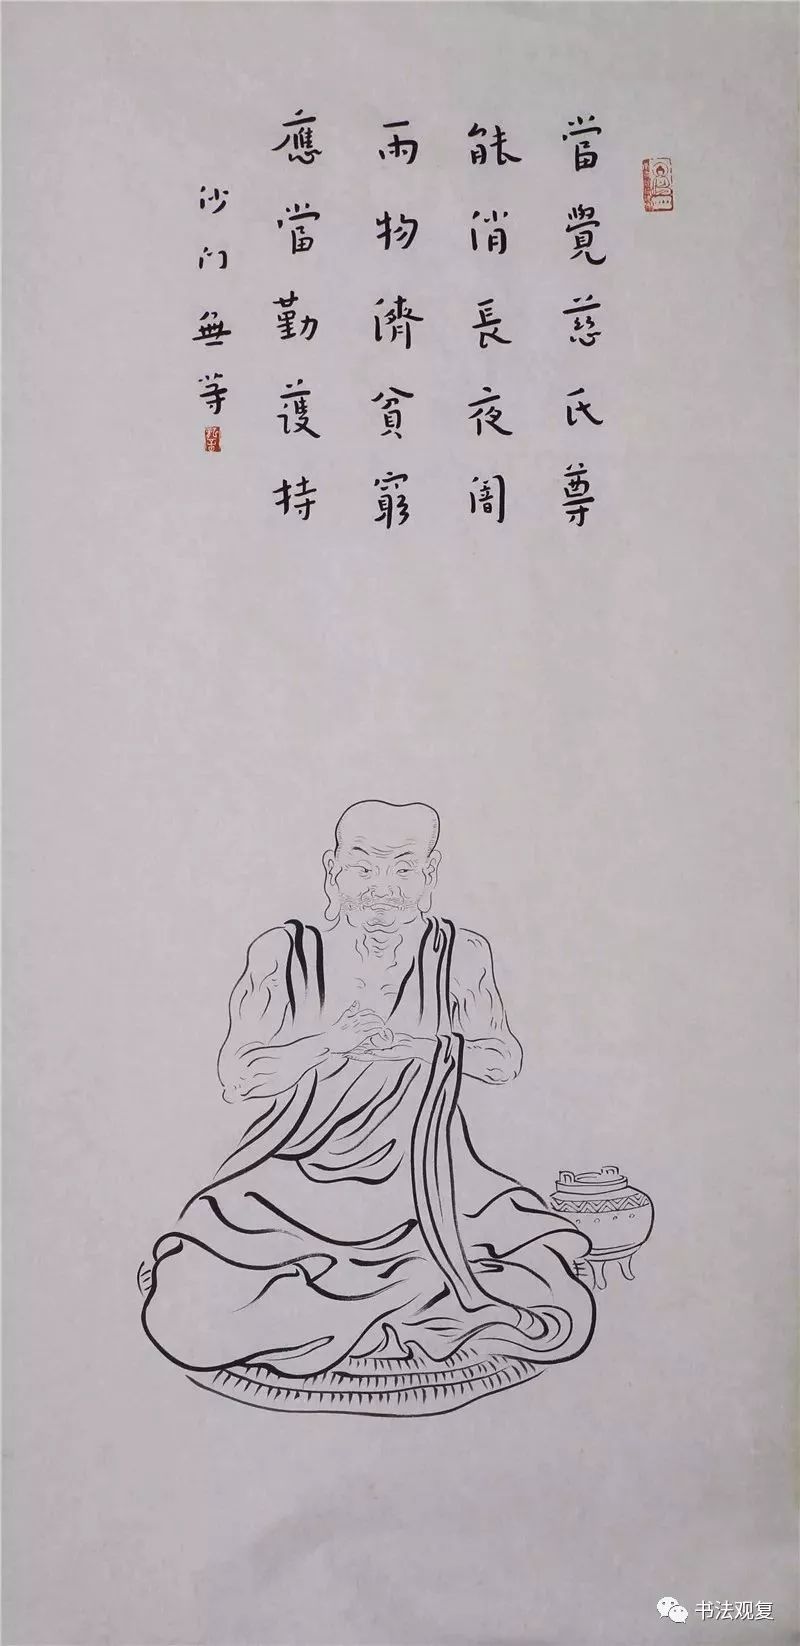 當覺慈氏尊
能消長夜闇
雨物濟貧窮
應當勤護持
沙门無等
书法观复